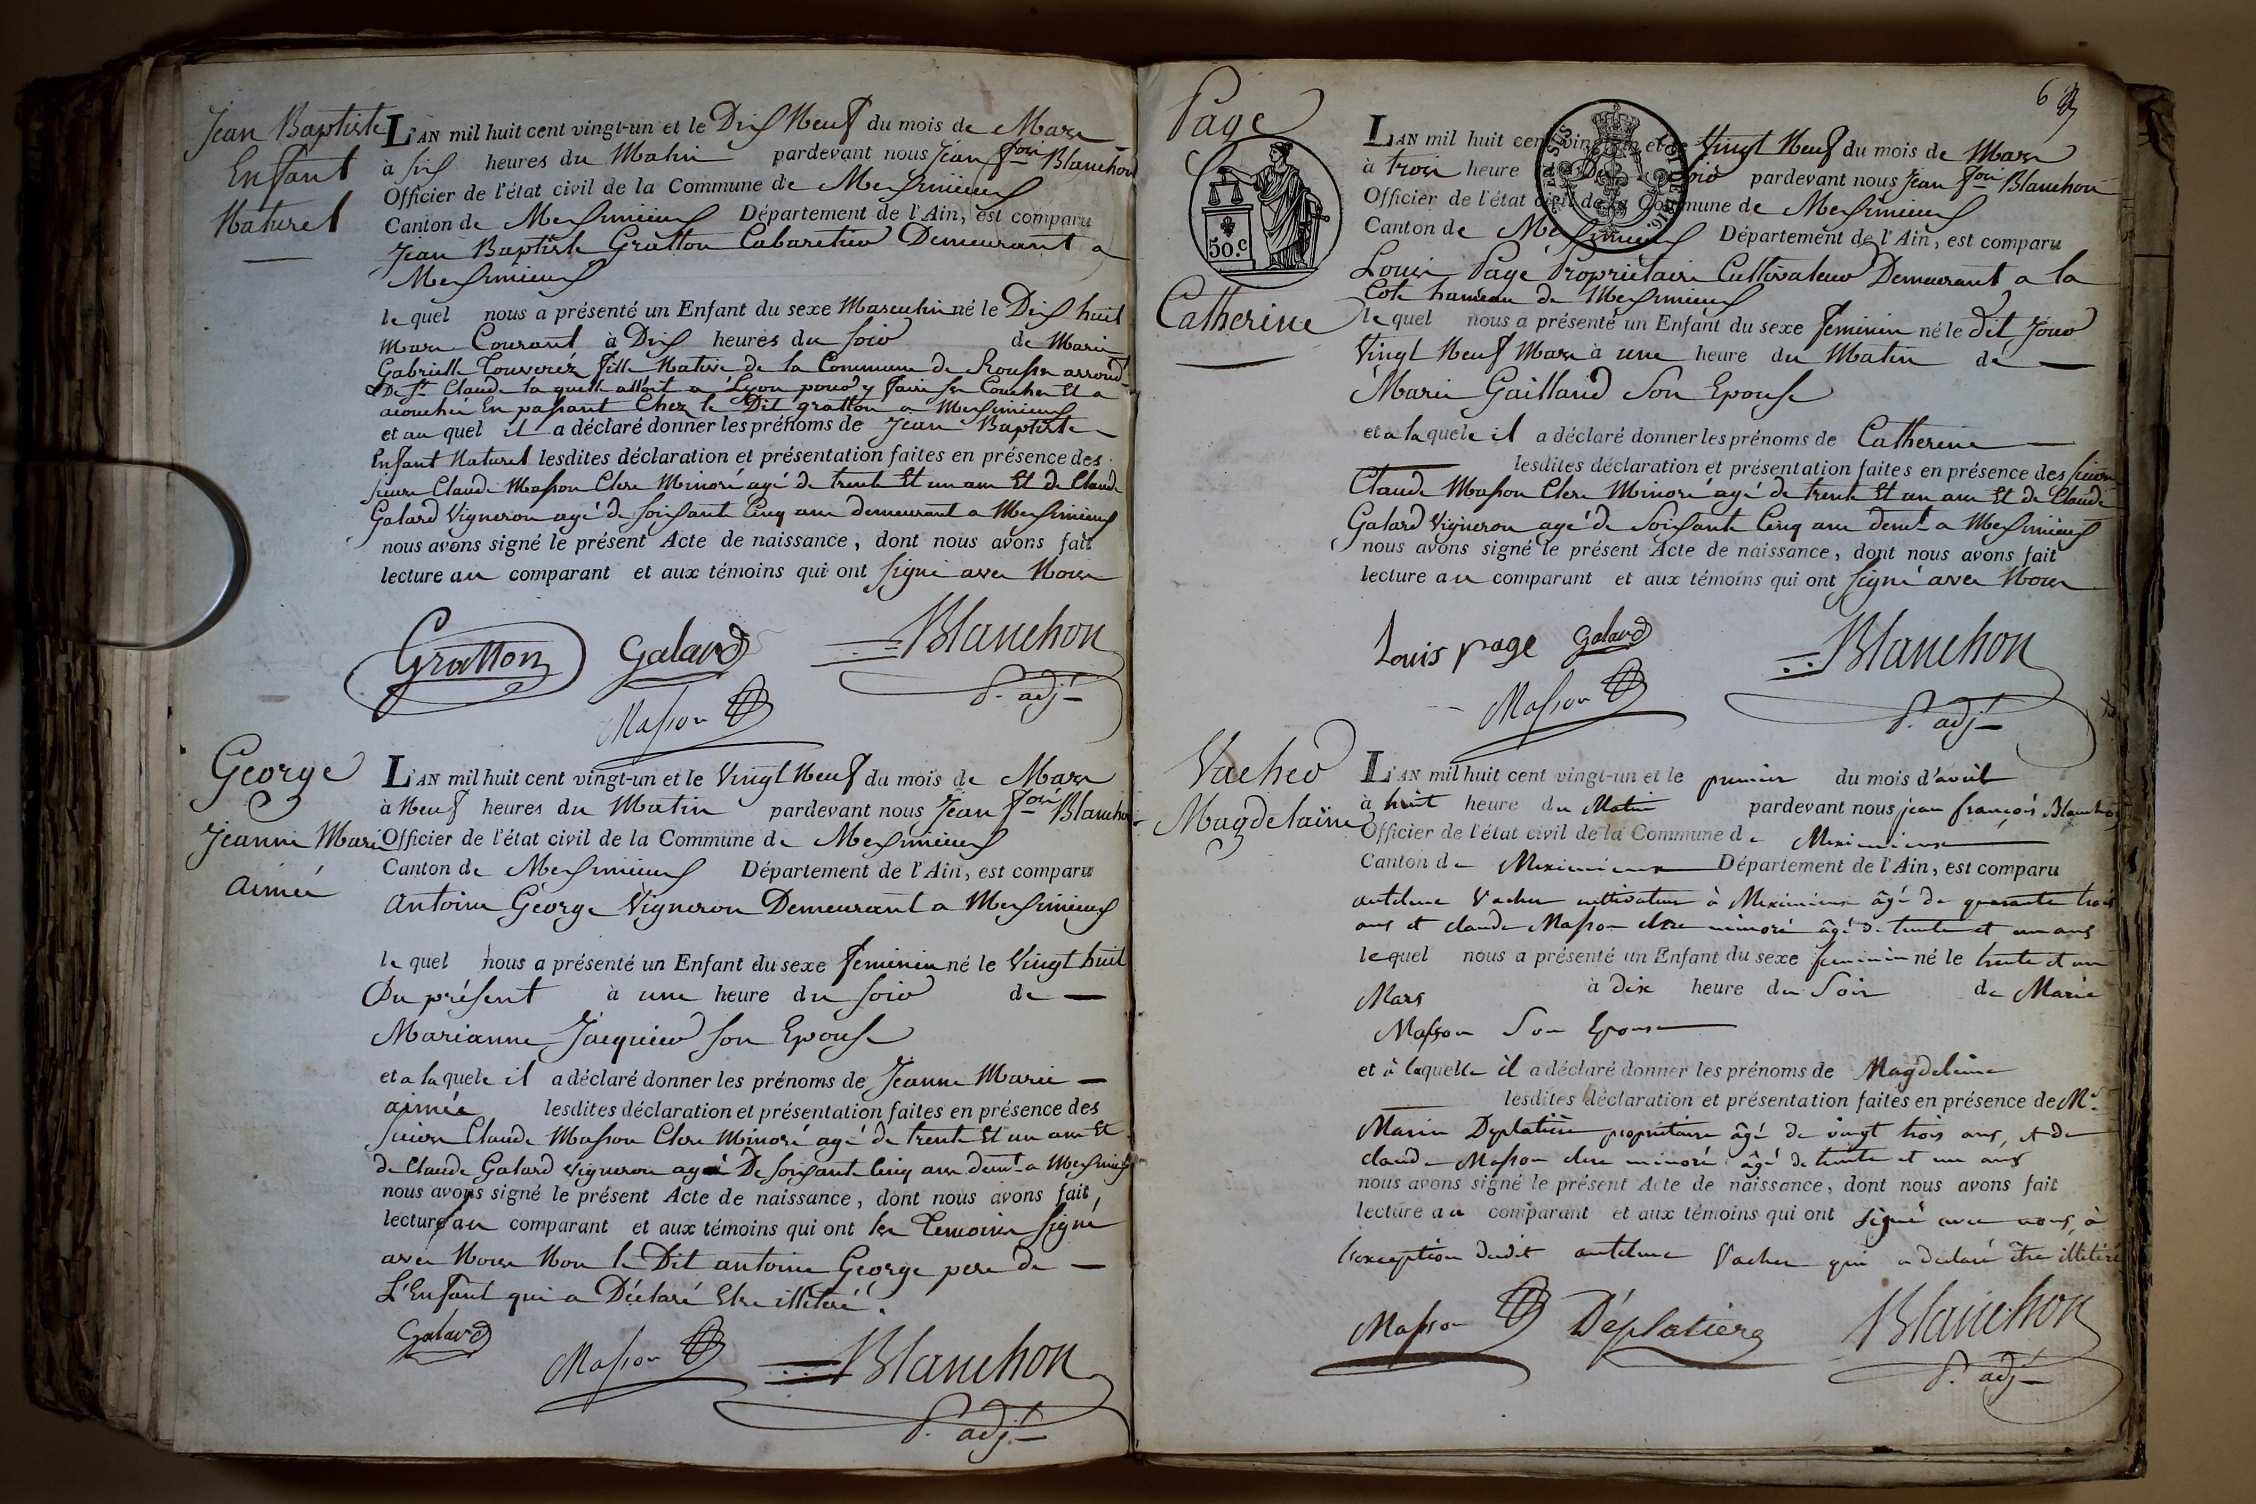 Jean Baptiste
Enfant
Naturel
L'AN mil huit cent vingt-un et le Dix Neuf du mois de Mars
à Six heures du Matin pardevant nous Jean fcois Blanchon
Officier de l'état civil de la Commune de Meximieux
Canton de Meximieux Département de l'Ain, est comparu
Jean Baptiste Gratton Cabaretier Demeurant a
Meximieux
le quel nous a présenté un Enfant du sexe Masculin né le Dix huit
Mars Courant à Dix heures du soir de Marie
Gabrielle fille Native de la Commune de arrond.
De St Claude la quelle alloit a Lyon pour y faire ses Couches Et a
acouchée En passant Chez le Dit gratton a Meximieux
et au quel il a déclaré donner les prénoms de Jean Baptiste
Enfant Naturel lesdites déclaration et présentation faites en présence des
sieurs Claude Masson Clerc Minoré agé de trente Et un ans Et de Claude
Galard Vigneron agé de soixante Cinq ans demeurant a Meximieux
nous avons signé le présent Acte de naissance, dont nous avons fait
lecture au comparant et aux témoins qui ont signé avec Nous
Gratton Galard Blanchon
Masson P. adjt
George
Jeanne Marie
aimée
L'AN mil huit cent vingt-un et le Vingt Neuf du mois de Mars
à Neuf heures du Matin pardevant nous Jean fcois Blanchon
Officier de l'état civil de la Commune de Meximieux
Canton de Meximieux Département de l'Ain, est comparu
Antoine George Vigneron Demeurant a Meximieux
le quel nous a présenté un Enfant du sexe feminin né le Vingt huit
Du présent à une heure du soir de
Marianne Jacquier son Epouse
et a la quele il a déclaré donner les prénoms de Jeanne Marie
aimée lesdites déclaration et présentation faites en présence des
sieurs Claude Masson Clerc Minoré agé de trente Et un ans Et
de Claude Galard vigneron agé De soixante Cinq ans demt a Meximieux
nous avons signé le présent Acte de naissance, dont nous avons fait
lecture au comparant et aux témoins qui ont les Temoins signé
avec Nous Non le Dit antoine George pere de
L'Enfant qui a Déclaré Etre illiteré.
Galard Masson Blanchon
P. adjt
6
Page
50.c
Catherine
L'AN mil huit cent vingt-un et le Vingt Neuf du mois de Mars
à trois heure Du Soir pardevant nous Jean fcois Blanchon
Officier de l'état civil de la Commune de Meximieux
Canton de Meximieux Département de l'Ain, est comparu
Louis Page Propriétaire Cultivateur Demeurant a la
Cote hameau de Meximieux
le quel nous a présenté un Enfant du sexe feminin né le dit Jour
Vingt Neuf Mars à une heure du Matin de
Marie Gailland Son Epouse
et a la quele il a déclaré donner les prénoms de Catherine
lesdites déclaration et présentation faites en présence des sieurs
Claude Masson Clerc Minoré agé de trente Et un ans Et de Claude
Galard Vigneron agé de Soixante Cinq ans demt a Meximieux
nous avons signé le présent Acte de naissance, dont nous avons fait
lecture au comparant et aux témoins qui ont signé avec Nous
Louis page Galard Blanchon
Masson P. adjt
Vacher
Magdelaine
L'AN mil huit cent vingt-un et le premier du mois d'avril
à huit heure du Matin pardevant nous jean françois Blanchon
Officier de l'état civil de la Commune de Meximieux
Canton de Meximieux Département de l'Ain, est comparu
antelme Vacher cultivateur à Meximieux âgé de quarante trois
ans et claude Masson clerc minoré âgé de trente et un ans
le quel nous a présenté un Enfant du sexe feminin né le trente et un
Mars à dix heure du Soir de Marie
Masson Son Epouse
et à laquelle il a déclaré donner les prénoms de Magdeleine
lesdites déclaration et présentation faites en présence de Mr
Marin Déplatière propriétaire âgé de vingt trois ans, et de
claude Masson clerc minoré âgé de trente et un ans
nous avons signé le présent Acte de naissance, dont nous avons fait
lecture au comparant et aux témoins qui ont signé avec nous, à
l'exception dudit antelme Vacher qui a declaré être illitéré
Masson Déplatière Blanchon
P. adjt